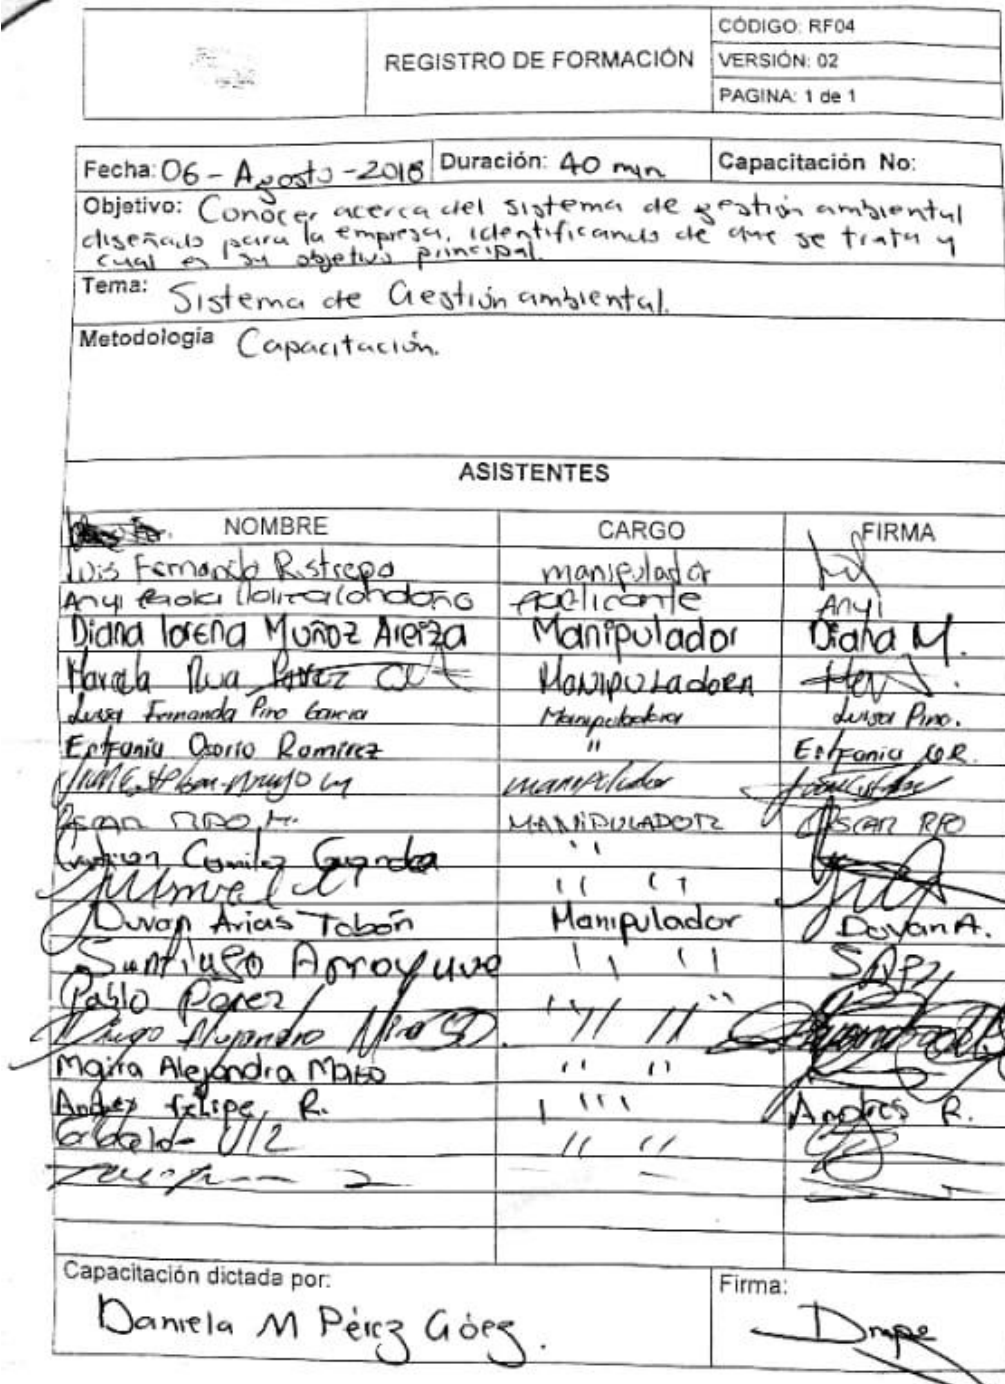 REGISTRO DE FORMACIÓN
CÓDIGO: RF04
VERSIÓN: 02
PAGINA: 1 de 1
Fecha: 06 - Agosto - 2018 Duración: 40 min Capacitación No:
Objetivo: Conocer acerca del sistema de gestión ambiental
diseñado para la empresa, identificando de que se trata y
cual es su objetivo principal.
Tema: Sistema de Gestión ambiental.
Metodología Capacitación.
ASISTENTES
NOMBRE CARGO FIRMA
Luis Fernando Restrepo manipulador
Anyi Paola Londoño Anyi
Diana lorena Muñoz Areiza Manipulador Diana M.
Marcela Rua Manipuladora
Luisa Fernanda Pino Garcia Manipuladora Luisa Pino.
Estefania Osorio Ramirez " Estefania O.R.
manipulador
OSCAR RPO M. MANIPULADOR OSCAR RPO
Camilo " "
" "
Duvan Arias Tobón Manipulador Duvan A.
Santiago Arroyave " "
Pablo Perez " "
Diego Alejandro " "
Maira Alejandra Mazo " "
Andres felipe R. " " Andres R.
" "
Capacitación dictada por: Firma:
Daniela M Pérez Góez.